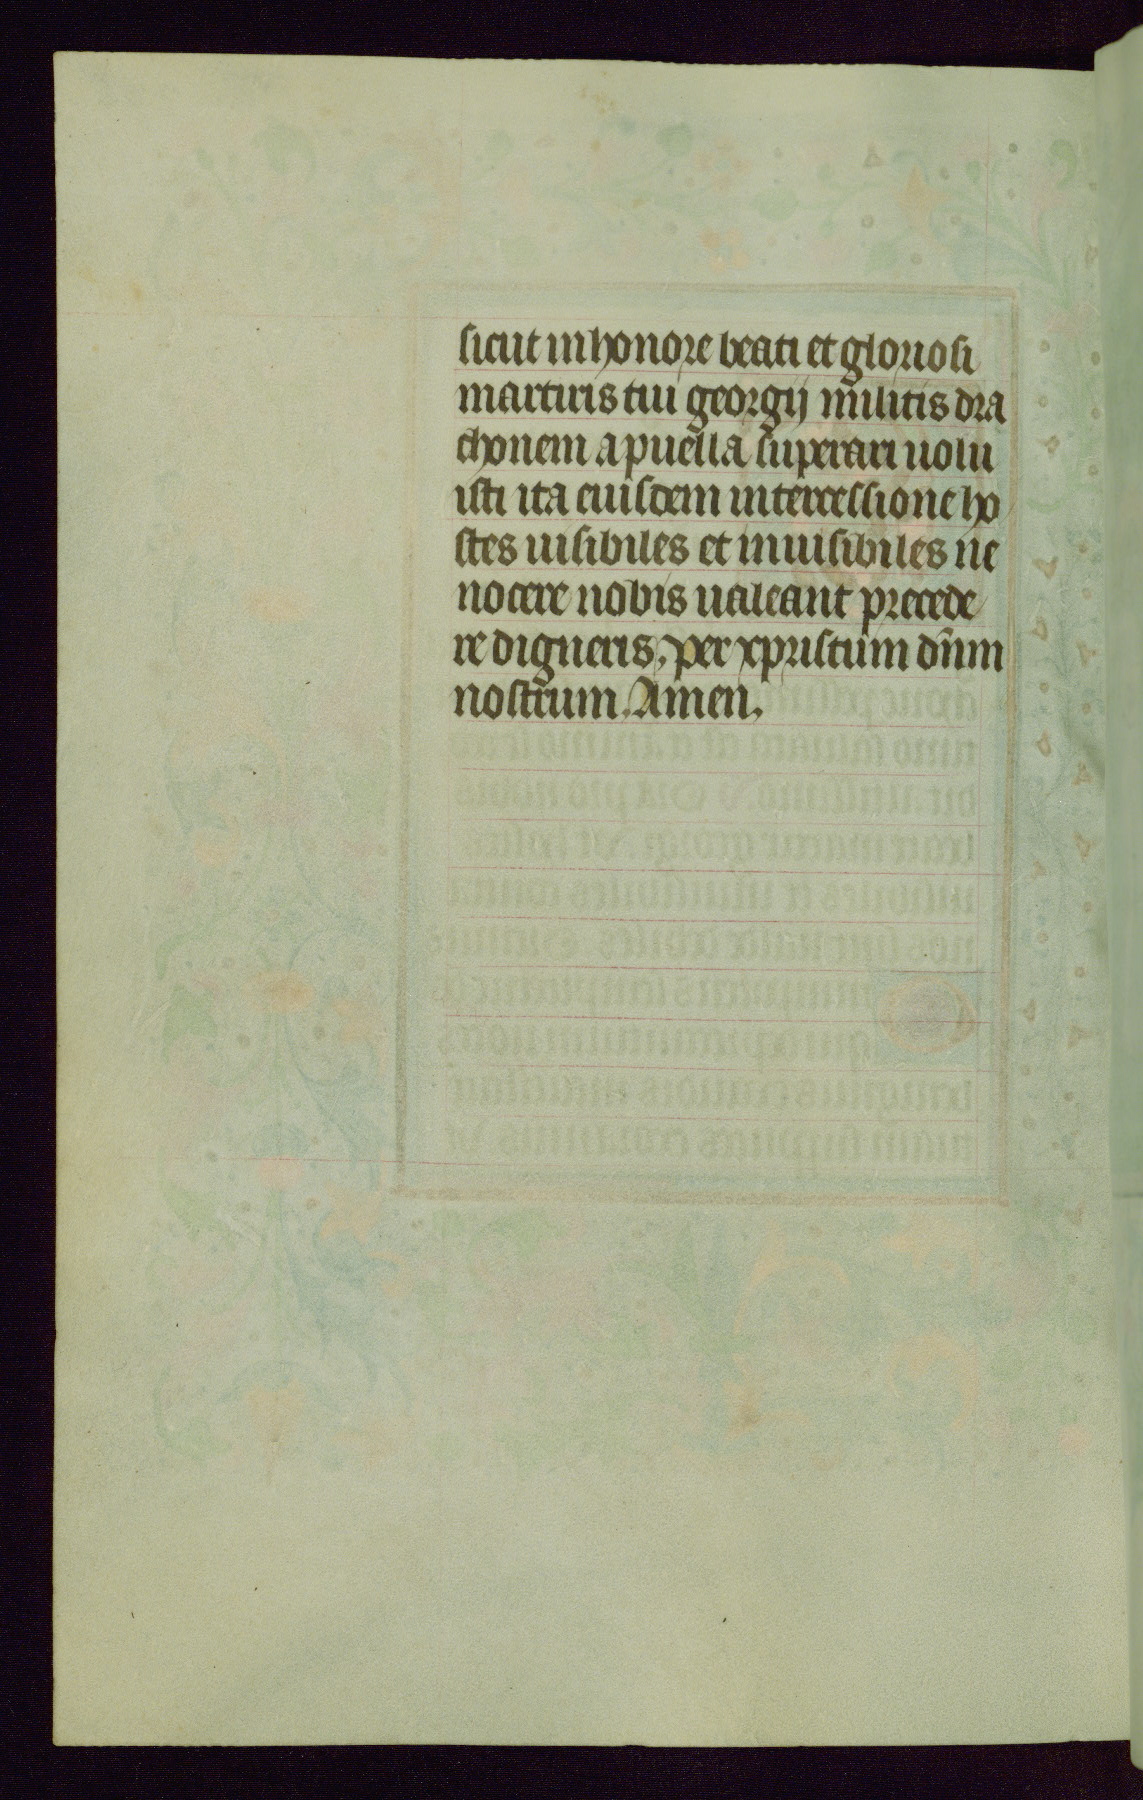 sicut in honore beati et gloriosi
martiris tui georgij militis dra
chonem a puella superari uolu
isti ita eiusdem intercessione ho
stes uisibiles et inuisibiles ne
nocere nobis ualeant precede
re digneris. per xpristum dnm
nostrum. Amen.